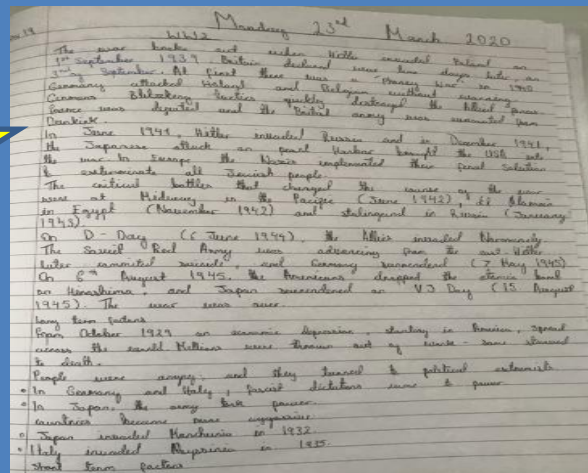 Monday 23rd March 2020
WW2
The war broke out when Hitler invaded Poland on
1st September 1939. Britain declared war two days later, on
3rd September. At first there was a Phoney War. in 1940
Germany attacked Holland and Belgium without warning.
Germans Blitzkrieg tactics quickly destroyed the Allied forces.
France was defeated and the British army was evacuated from
Dunkirk.
In June 1941, Hitler invaded Russia and in December 1941,
the Japanese attack on pearl Harbor brought the USA into
the war. In Europe the Nazis implemented their final solution
to exterminate all Jewish people.
The critical battles that changed the course of the war
were at Midway in the Pacific (June 1942), El Alamein
in Egypt (November 1942) and stalingrad in Russia (January
1943).
On D-Day (6 June 1944), the Allies invaded Normandy.
The Soviet Red Army was advancing from the east. Hitler
later commited suicide, and Germany surrendered (7 May 1945)
On 6th August 1945, the Americans dropped the atomic bomb
on Hiroshima, and Japan surrendered on VJ Day (15 August
1945). The war was over.
Long term factors
From October 1929 an economic depression, starting in America, spread
across the world. Millions were thrown out of work - some starved
to death.
People were angry, and they turned to political extremists
• In Germany and Italy, fascist dictators came to power.
• In Japan, the army took power.
countries became more aggressive.
• Japan invaded Manchuria in 1932.
• Italy invaded Abyssinia in 1935.
Short term factors